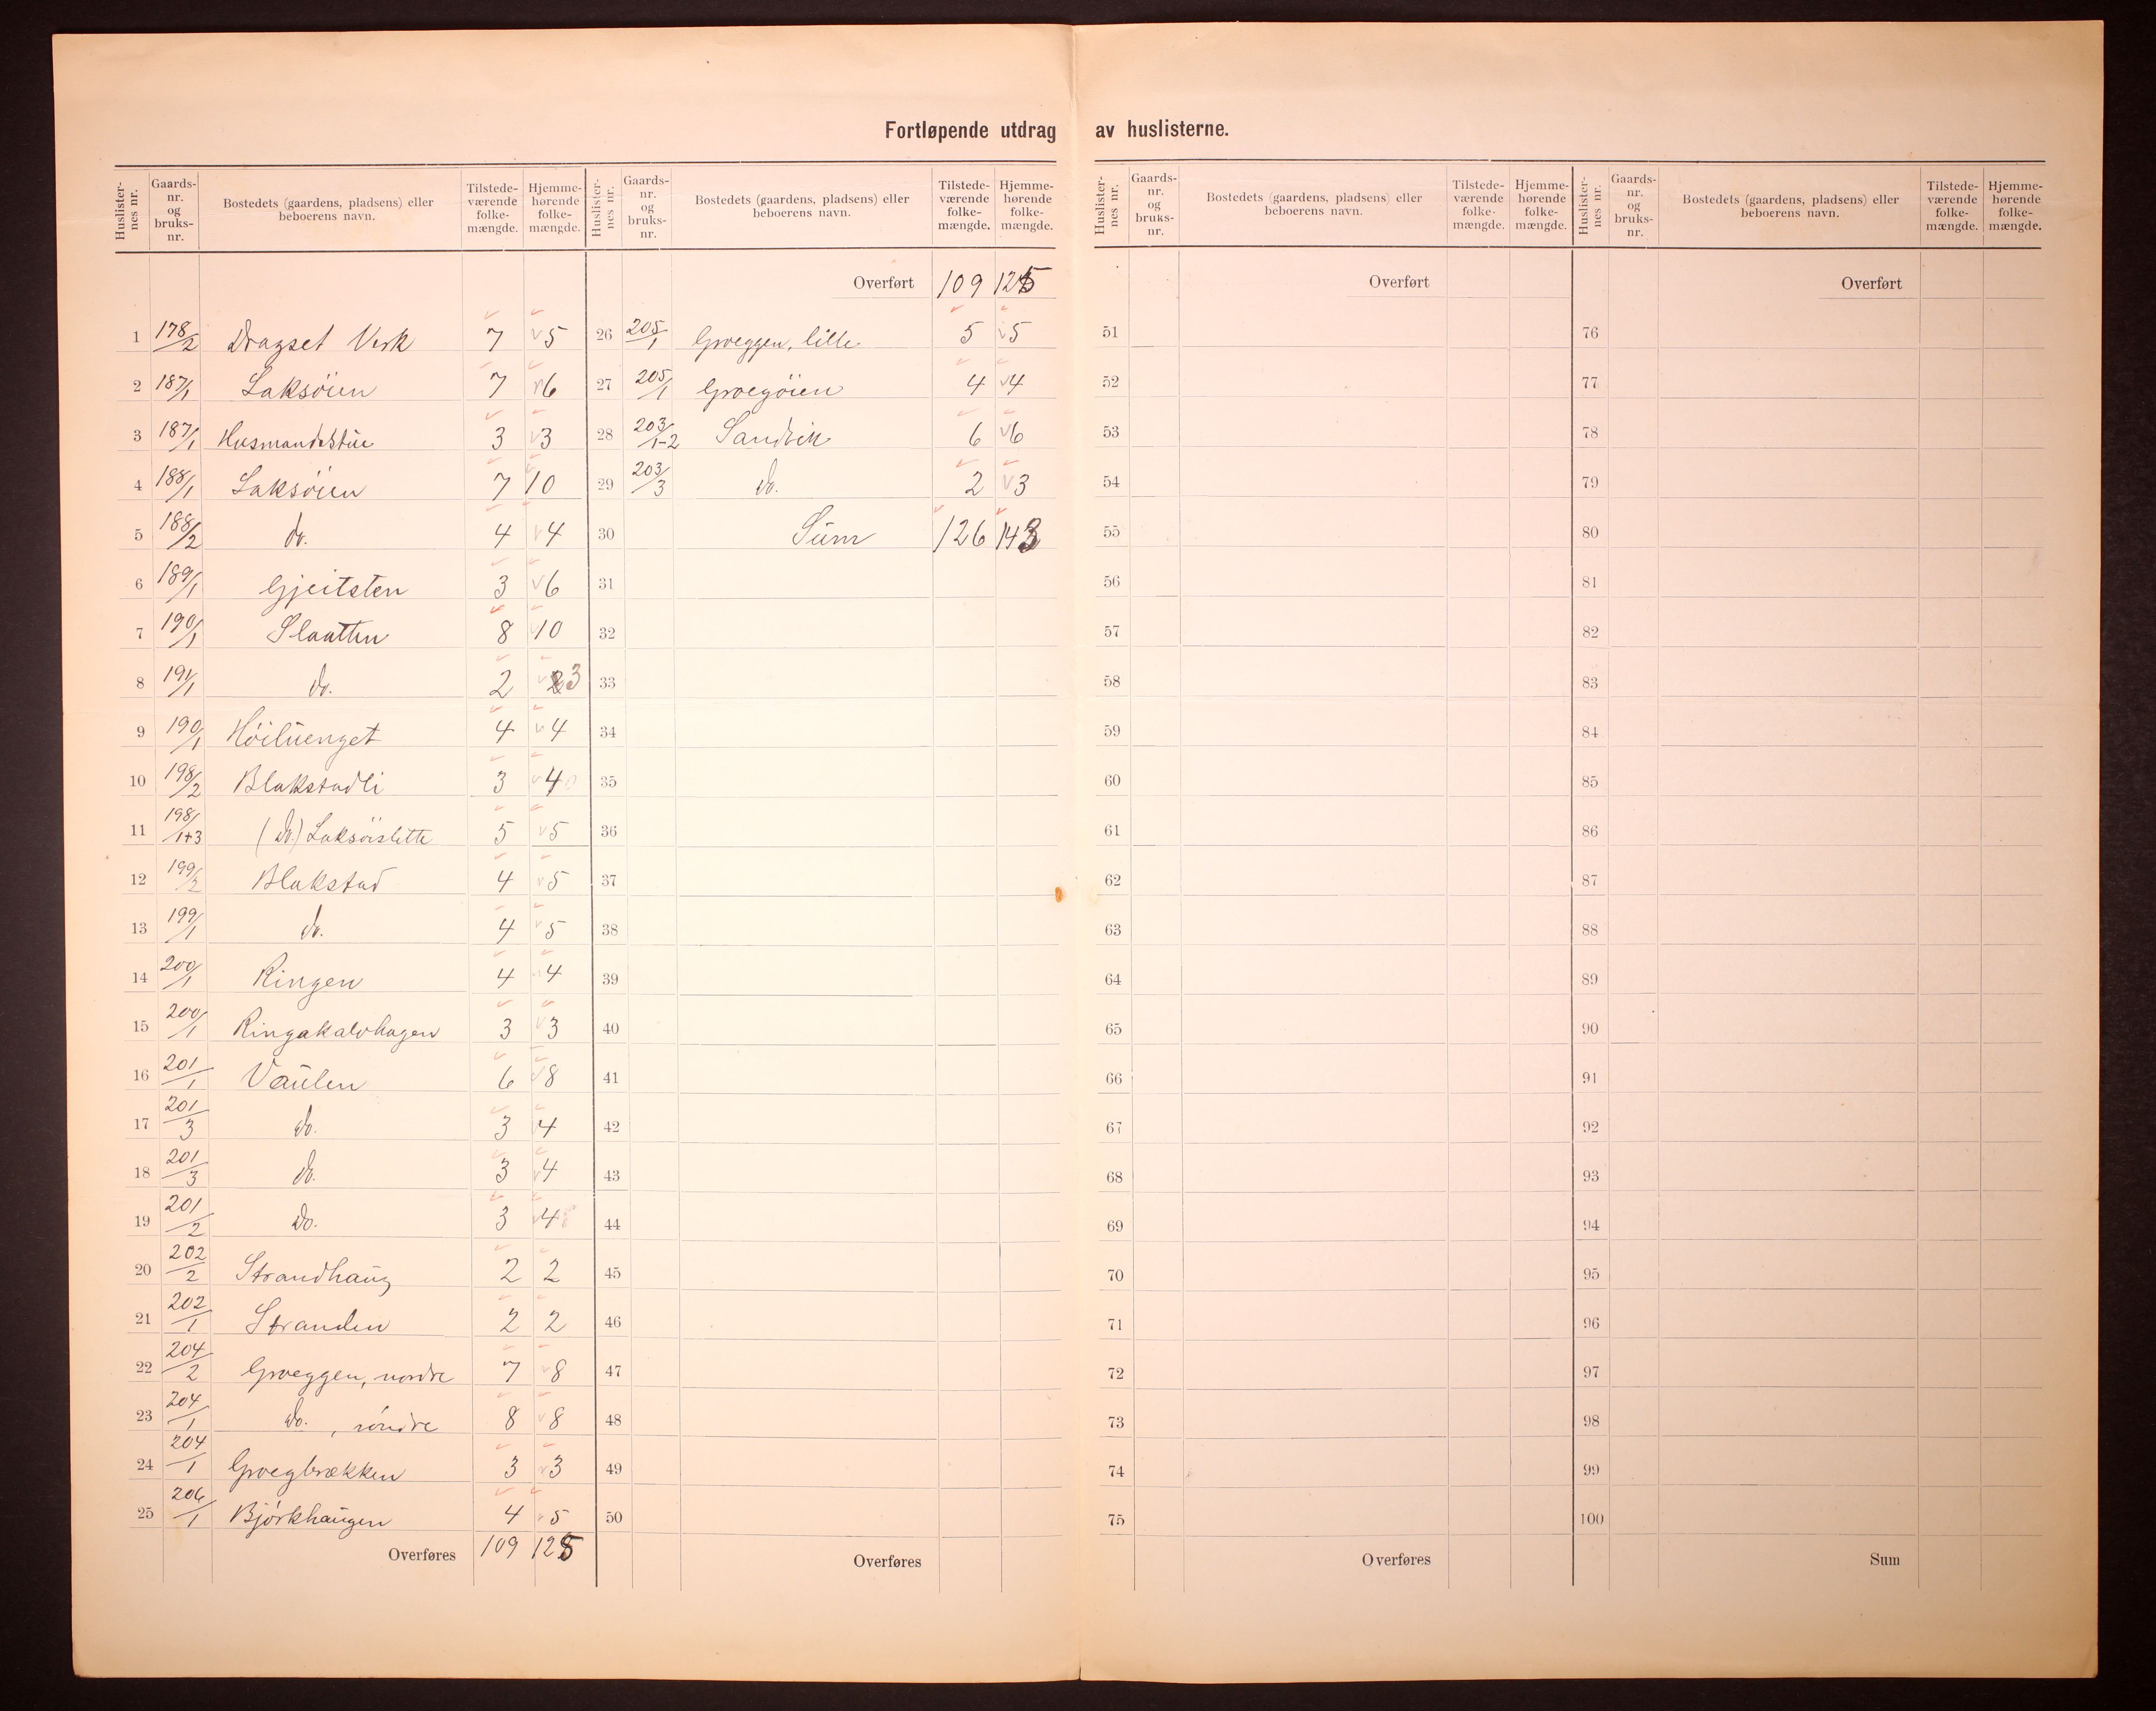 Fortløpende utdrag av huslisterne.
Huslister-nes nr. Gaards-nr. og bruks-nr. Bostedets (gaardens, pladsens) eller beboerens navn. Tilstede-værende folke-mængde. Hjemme-hørende folke-mængde.
1 178/2 Dragset Verk 7 5
2 187/1 Laksöien 7 6
3 187/1 Husmandsstue 3 3
4 188/1 Laksöien 7 10
5 188/2 do. 4 4
6 189/1 Gjeitsten 3 6
7 190/1 Slaatten 8 10
8 191/1 do. 2 3
9 190/1 Höiluenget 4 4
10 198/2 Blakstadli 3 4
11 198/1+3 (do.) Laksöislette 5 5
12 199/2 Blakstad 4 5
13 199/1 do. 4 5
14 200/1 Ringen 4 4
15 200/1 Ringakalvhagen 3 3
16 201/1 Vaulen 6 8
17 201/3 do. 3 4
18 201/3 do. 3 4
19 201/2 do. 3 4
20 202/2 Strandhaug 2 2
21 202/1 Stranden 2 2
22 204/2 Groeggen, nordre 7 8
23 204/1 do. , söndre 8 8
24 204/1 Groegbrækken 3 3
25 206/1 Björkhaugen 4 5
Overføres 109 125
Huslister-nes nr. Gaards-nr. og bruks-nr. Bostedets (gaardens, pladsens) eller beboerens navn. Tilstede-værende folke-mængde. Hjemme-hørende folke-mængde.
Overført 109 125
26 205/1 Groeggen, lille 5 5
27 205/1 Groegöien 4 4
28 203/1-2 Sandvik 6 6
29 203/3 do. 2 3
30 Sum 126 143
31
32
33
34
35
36
37
38
39
40
41
42
43
44
45
46
47
48
49
50
Overføres
Huslister-nes nr. Gaards-nr. og bruks-nr. Bostedets (gaardens, pladsens) eller beboerens navn. Tilstede-værende folke-mængde. Hjemme-hørende folke-mængde.
Overført
51
52
53
54
55
56
57
58
59
60
61
62
63
64
65
66
67
68
69
70
71
72
73
74
75
Overføres
Huslister-nes nr. Gaards-nr. og bruks-nr. Bostedets (gaardens, pladsens) eller beboerens navn. Tilstede-værende folke-mængde. Hjemme-hørende folke-mængde.
Overført
76
77
78
79
80
81
82
83
84
85
86
87
88
89
90
91
92
93
94
95
96
97
98
99
100
Sum